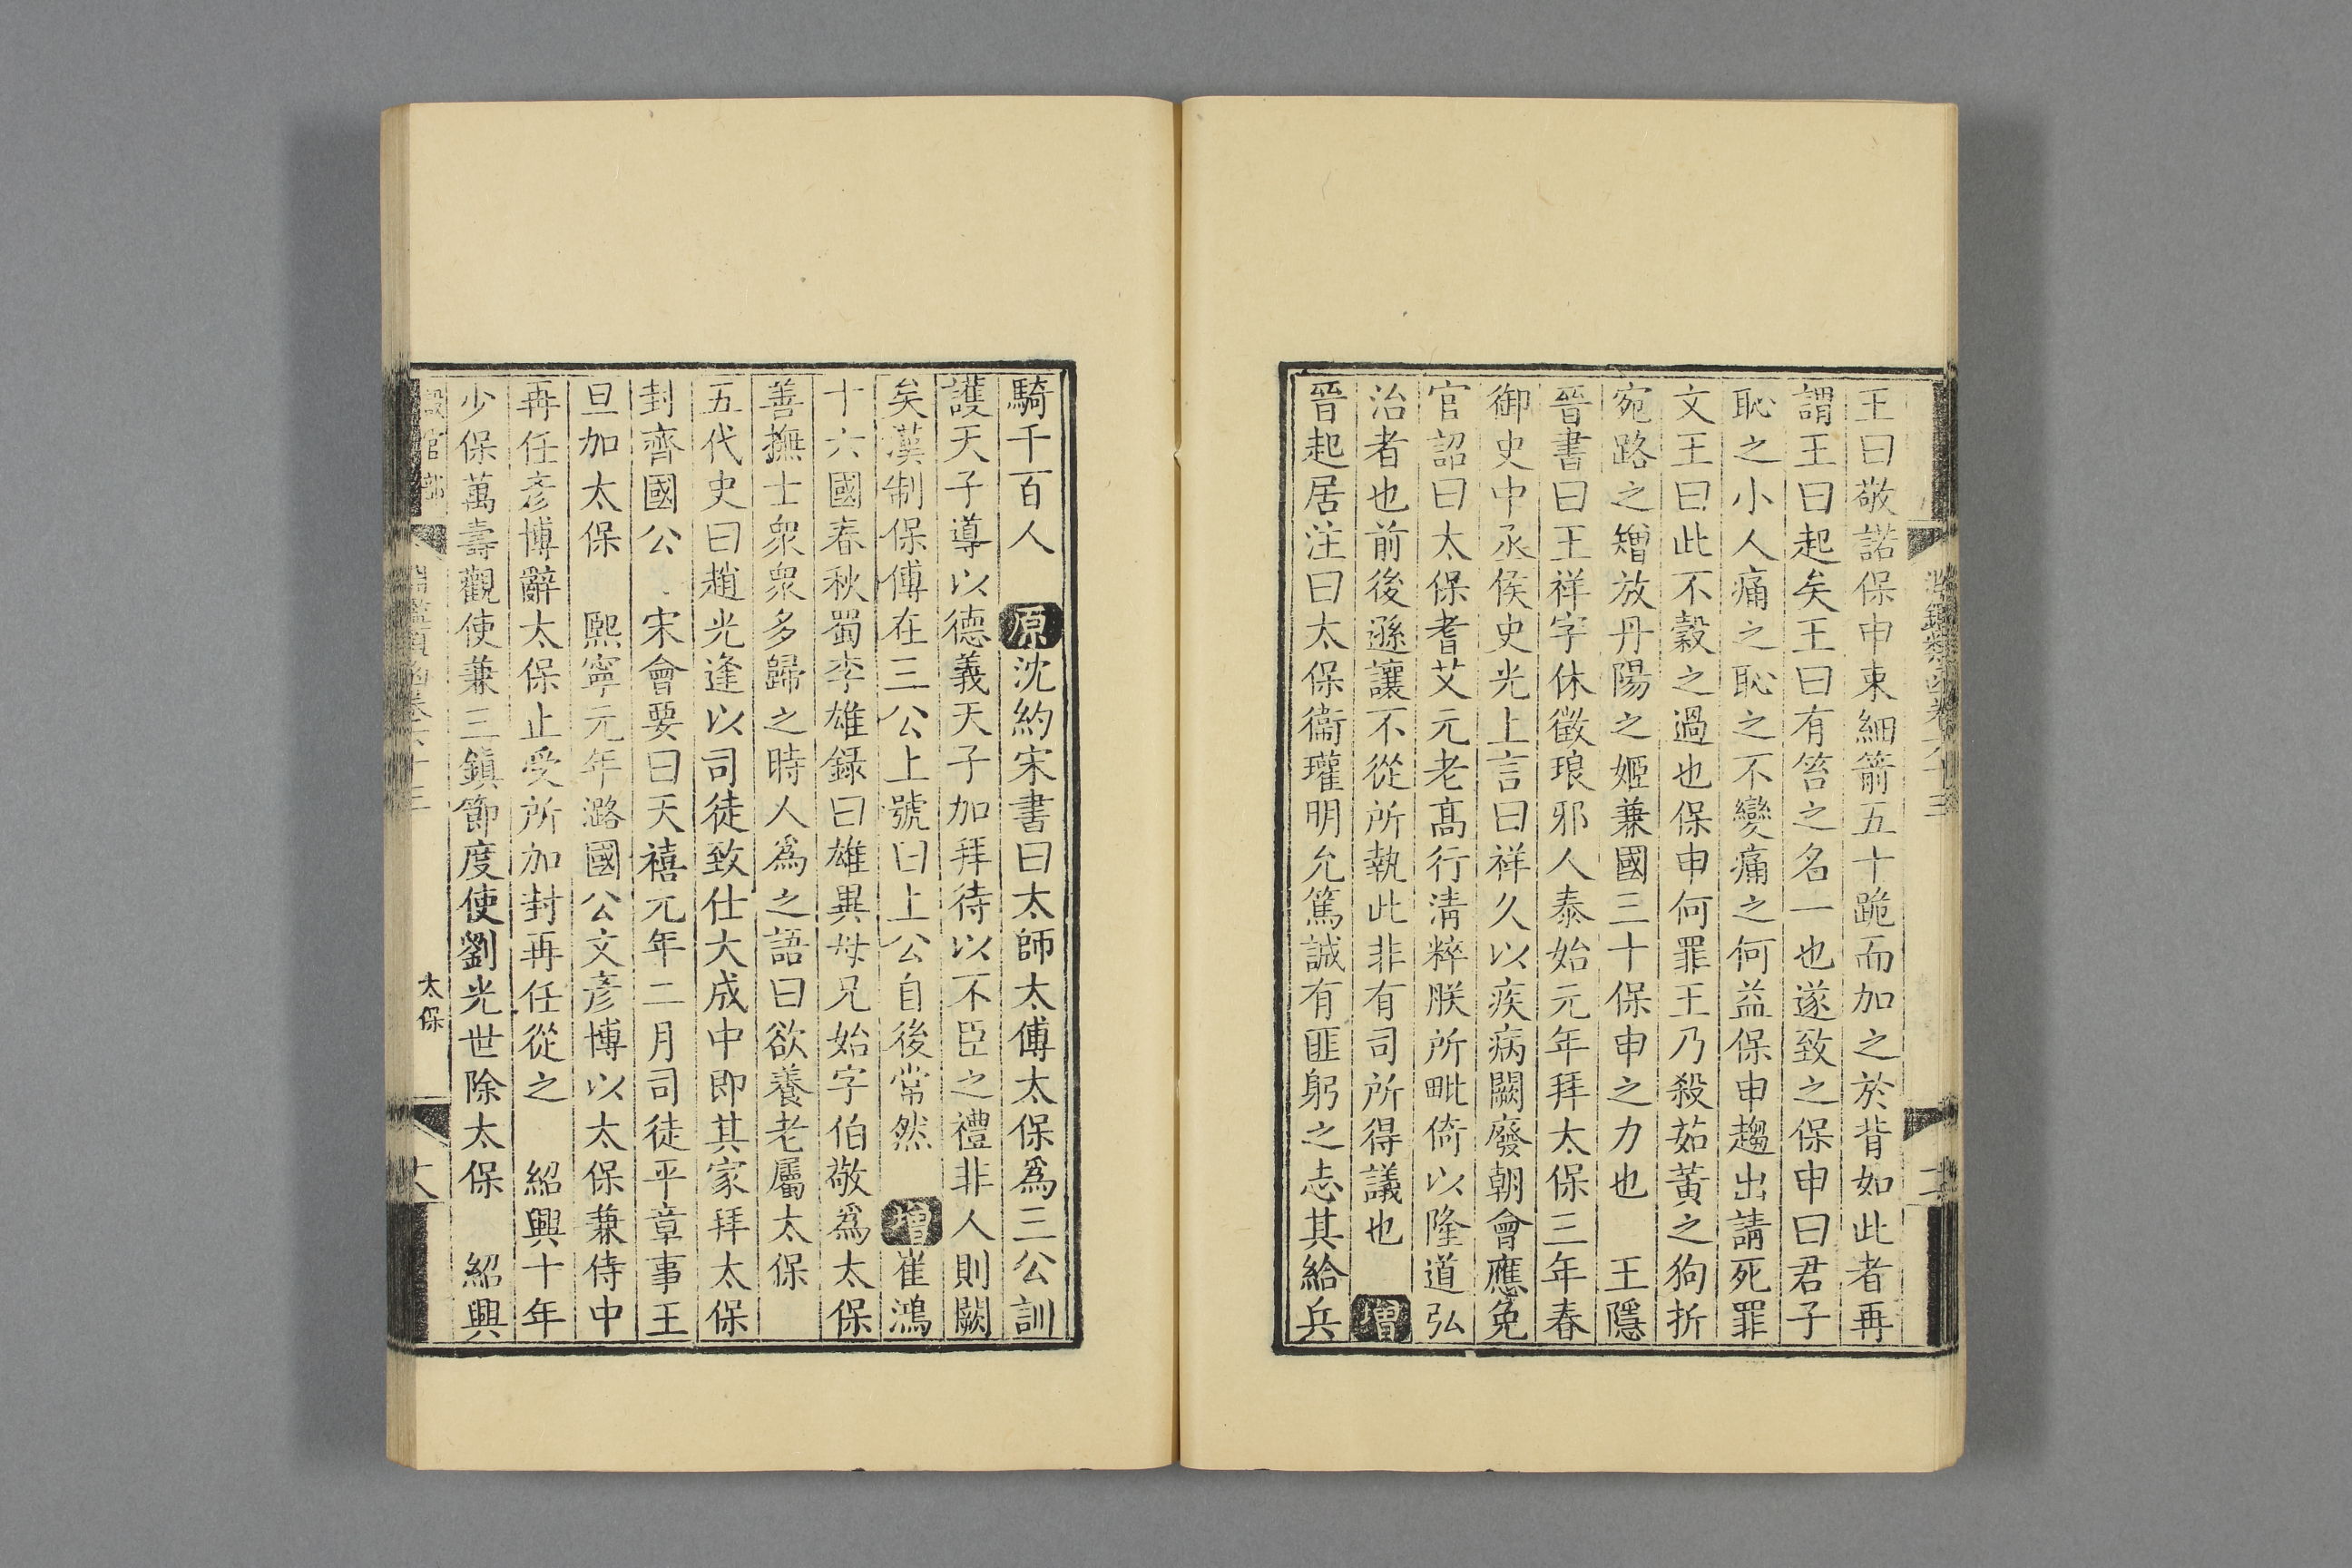 王曰敬諾保申束細箭五十跪而加之於背如此者再
謂王曰起矣王曰有笞之名一也遂致之保申曰君子
恥之小人痛之恥之不變痛之何益保申趨出請死罪
文王曰此不穀之過也保申何罪王乃殺茹黃之狗折
宛路之矰放丹陽之姬兼國三十保申之力也　王隱
晉書曰王祥字休徵琅邪人泰始元年拜太保三年春
御史中丞侯史光上言曰祥久以疾病闕廢朝會應免
官詔曰太保耆艾元老高行清粹朕所毗倚以隆道弘
治者也前後遜讓不從所執此非有司所得議也　增
晉起居注曰太保衞瓘明允篤誠有匪躬之志其給兵
騎千百人　原沈約宋書曰太師太傅太保爲三公訓
護天子導以德義天子加拜待以不臣之禮非人則闕
矣漢制保傅在三公上號曰上公自後常然　增崔鴻
十六國春秋蜀李雄錄曰雄異母兄始字伯敬爲太保
善撫士衆衆多歸之時人爲之語曰欲養老屬太保
五代史曰趙光逢以司徒致仕大成中即其家拜太保
封齊國公　宋會要曰天禧元年二月司徒平章事王
旦加太保　熙寧元年潞國公文彥博以太保兼侍中
再任彥博辭太保止受所加封再任從之　紹興十年
少保萬壽觀使兼三鎮節度使劉光世除太保　紹興
太保